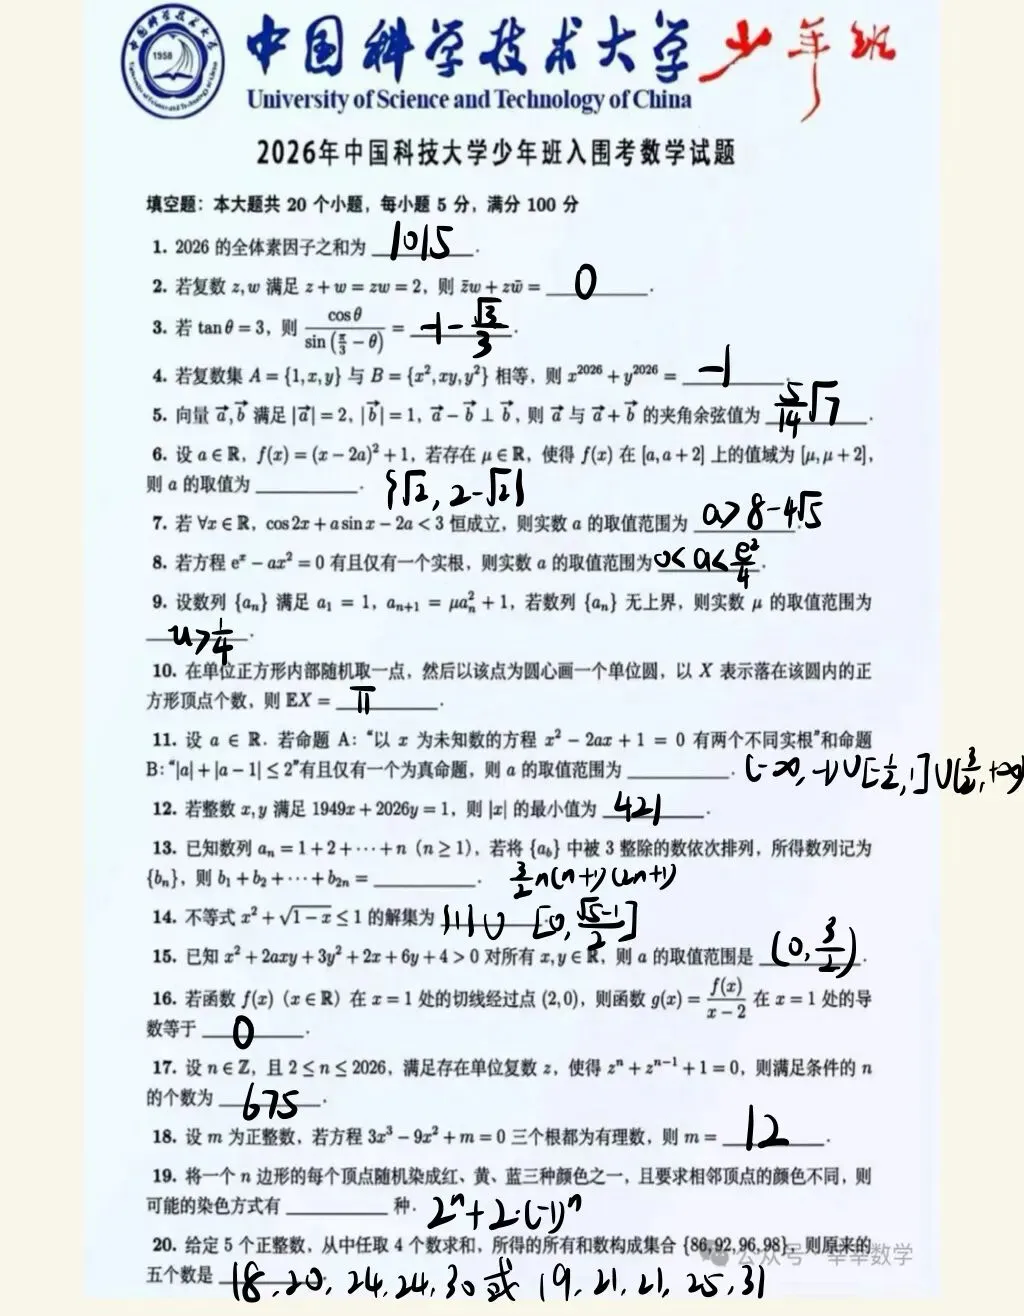 1958
中国科学技术大学少年班
University of Science and Technology of China
2026年中国科技大学少年班入围考数学试题
填空题：本大题共 20 个小题，每小题 5 分，满分 100 分
1. 2026 的全体素因子之和为 1015 .
2. 若复数 z, w 满足 z + w = zw = 2，则 z̄w + zw̄ = 0 .
3. 若 tan θ = 3，则 cos θ / sin(π/3 − θ) = −1 − √3/3 .
4. 若复数集 A = {1, x, y} 与 B = {x², xy, y²} 相等，则 x²⁰²⁶ + y²⁰²⁶ = −1 .
5. 向量 a⃗, b⃗ 满足 |a⃗| = 2, |b⃗| = 1, a⃗ − b⃗ ⊥ b⃗，则 a⃗ 与 a⃗ + b⃗ 的夹角余弦值为 5/14 √7 .
6. 设 a ∈ ℝ, f(x) = (x − 2a)² + 1，若存在 μ ∈ ℝ，使得 f(x) 在 [a, a + 2] 上的值域为 [μ, μ + 2]，
则 a 的取值为 . {√2, 2−√2}
7. 若 ∀x ∈ ℝ, cos 2x + a sin x − 2a < 3 恒成立，则实数 a 的取值范围为 a > 8 − 4√5 .
8. 若方程 eˣ − ax² = 0 有且仅有一个实根，则实数 a 的取值范围为 0 < a < e²/4 .
9. 设数列 {aₙ} 满足 a₁ = 1, aₙ₊₁ = μaₙ² + 1，若数列 {aₙ} 无上界，则实数 μ 的取值范围为
u > 1/4 .
10. 在单位正方形内部随机取一点，然后以该点为圆心画一个单位圆，以 X 表示落在该圆内的正
方形顶点个数，则 𝔼X = π .
11. 设 a ∈ ℝ. 若命题 A：“以 x 为未知数的方程 x² − 2ax + 1 = 0 有两个不同实根”和命题
B：“|a| + |a − 1| ≤ 2”有且仅有一个为真命题，则 a 的取值范围为 . (−∞, −1)∪[−1/2, 1]∪(3/2, +∞)
12. 若整数 x, y 满足 1949x + 2026y = 1，则 |x| 的最小值为 421 .
13. 已知数列 aₙ = 1 + 2 + ··· + n (n ≥ 1)，若将 {aₙ} 中被 3 整除的数依次排列，所得数列记为
{bₙ}，则 b₁ + b₂ + ··· + b₂ₙ = . 3/2 n(n+1)(2n+1)
14. 不等式 x² + √(1 − x) ≤ 1 的解集为 {1}∪[0, (√5−1)/2]
15. 已知 x² + 2axy + 3y² + 2x + 6y + 4 > 0 对所有 x, y ∈ ℝ，则 a 的取值范围是 (0, 3/2) .
16. 若函数 f(x) (x ∈ ℝ) 在 x = 1 处的切线经过点 (2, 0)，则函数 g(x) = f(x)/(x − 2) 在 x = 1 处的导
数等于 0 .
17. 设 n ∈ ℤ，且 2 ≤ n ≤ 2026，满足存在单位复数 z，使得 zⁿ + zⁿ⁻¹ + 1 = 0，则满足条件的 n
的个数为 675 .
18. 设 m 为正整数，若方程 3x³ − 9x² + m = 0 三个根都为有理数，则 m = 12 .
19. 将一个 n 边形的每个顶点随机染成红、黄、蓝三种颜色之一，且要求相邻顶点的颜色不同，则
可能的染色方式有 种. 2ⁿ + 2·(−1)ⁿ
20. 给定 5 个正整数，从中任取 4 个数求和，所得的所有和数构成集合 {86, 92, 96, 98}，则原来的
五个数是 18, 20, 24, 24, 30 或 19, 21, 21, 25, 31